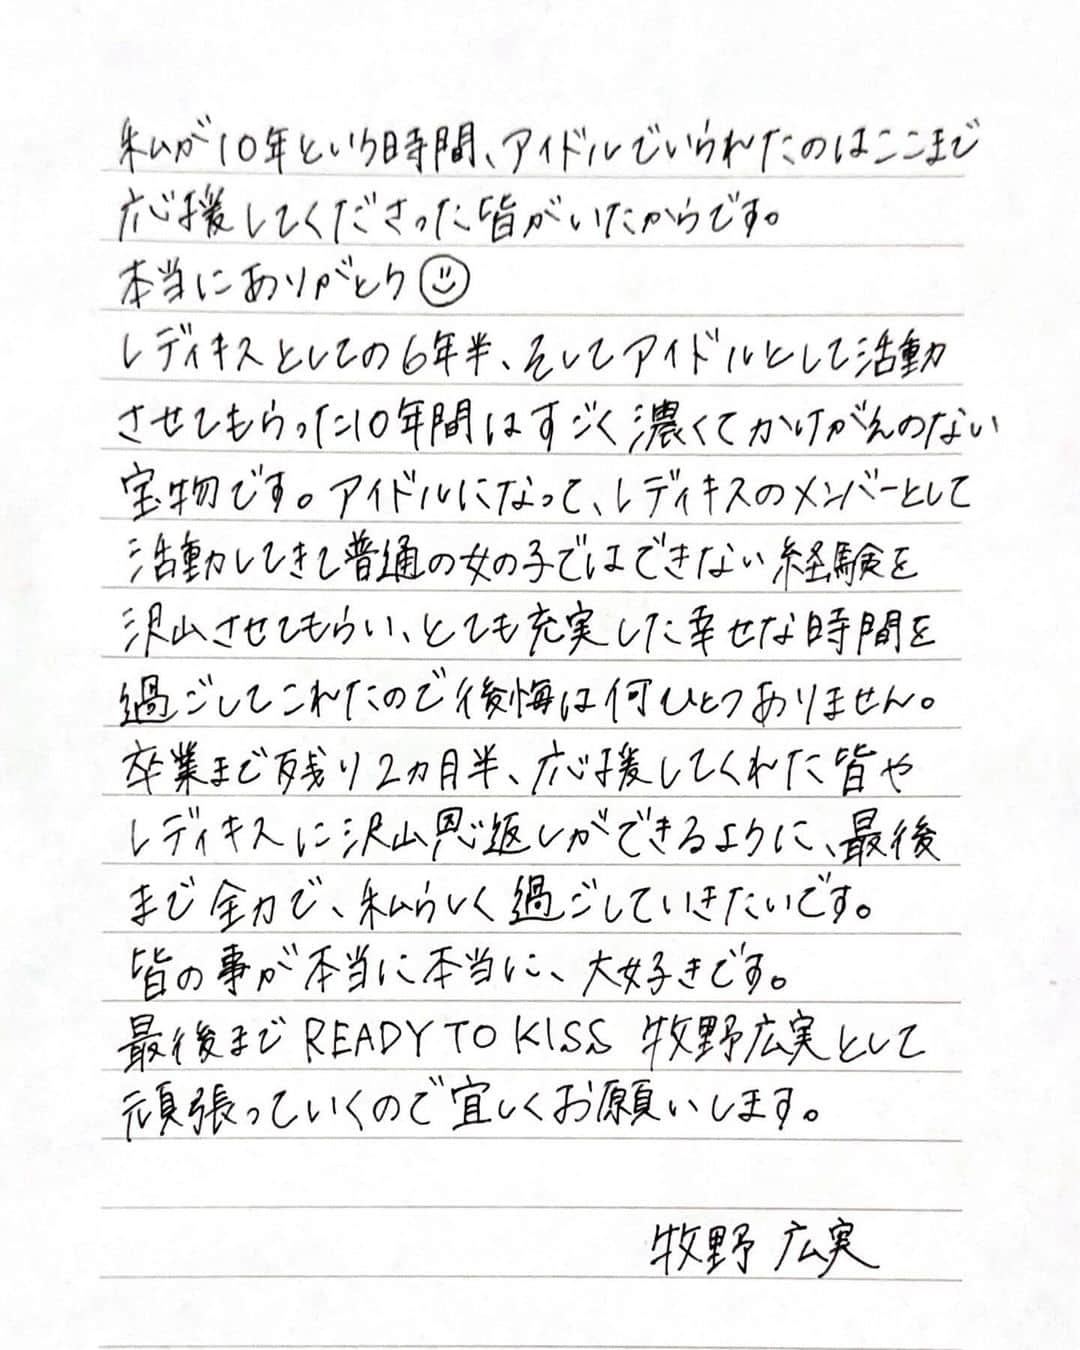 私が10年という時間、アイドルでいられたのはここまで
応援してくださった皆がいたからです。
本当にありがとう
レディキスとしての6年半、そしてアイドルとして活動
させてもらった10年間はすごく濃くてかけがえのない
宝物です。アイドルになって、レディキスのメンバーとして
活動してきて普通の女の子ではできない経験を
沢山させてもらい、とても充実した幸せな時間を
過ごしてこれたので後悔は何ひとつありません。
卒業まで残り2ヵ月半、応援してくれた皆や
レディキスに沢山恩返しができるように、最後
まで全力で、私らしく過ごしていきたいです。
皆の事が本当に本当に、大好きです。
最後までREADY TO KISS 牧野広実として
頑張っていくので宜しくお願いします。
牧野 広実